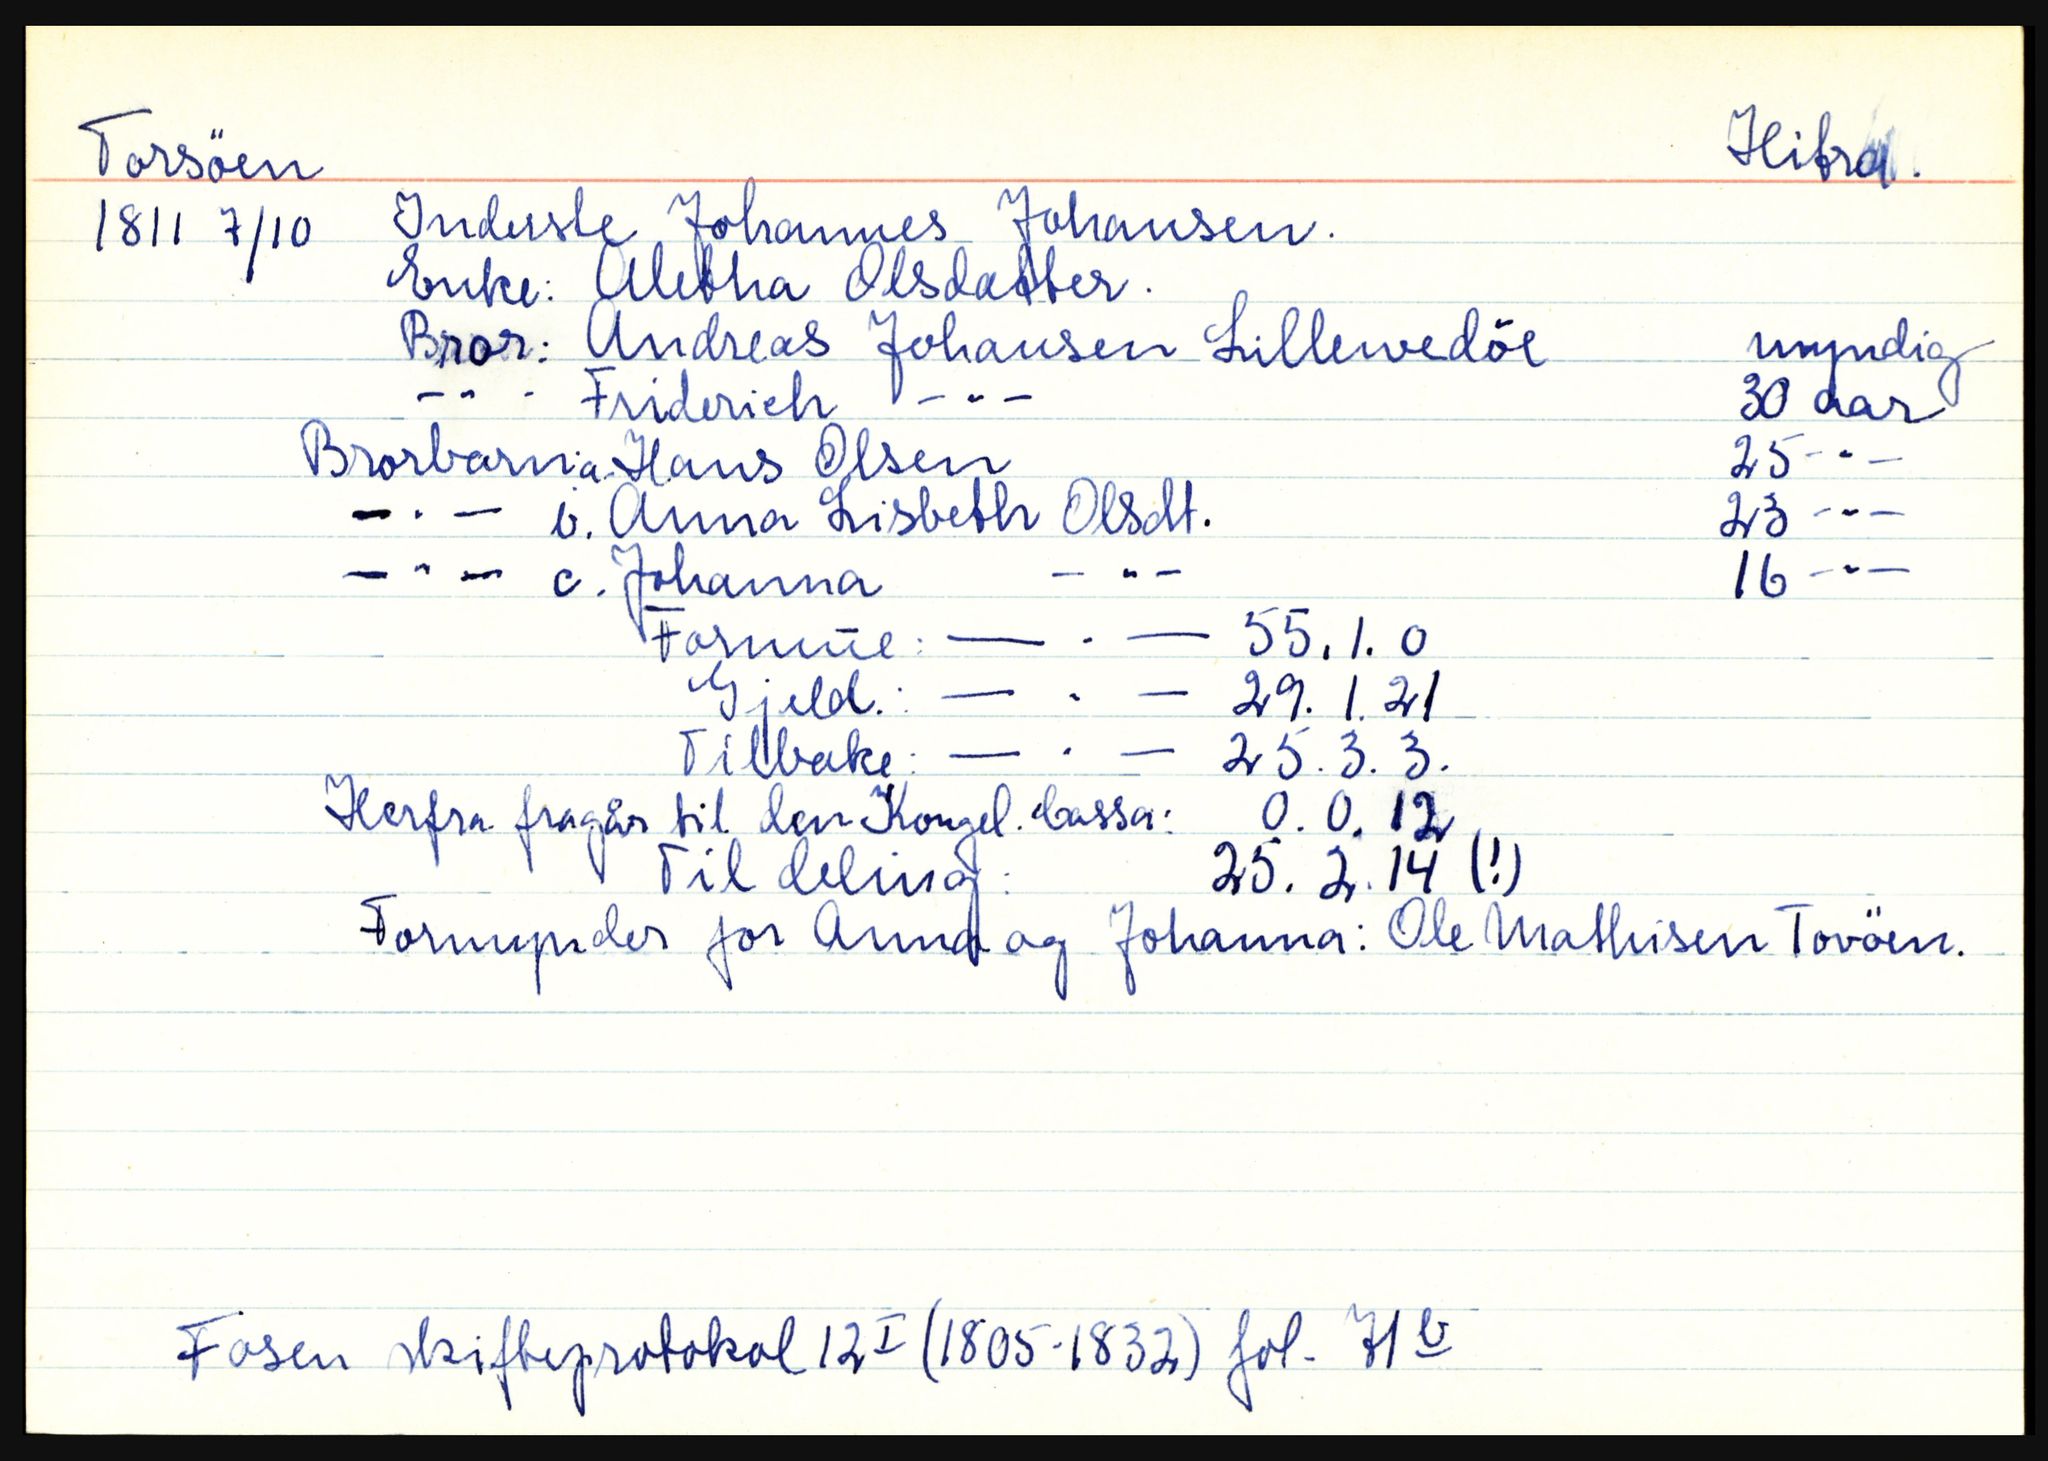 Torsöen Hitra.
1811 7/10 Inderste Johannes Johansen.
Enke: Aletha Olsdatter.
Bror: Andreas Johansen Lillewedöe myndig
-"- Friderich -"- 30 aar
Brorbarn: a. Hans Olsen 25 -"-
-"- b. Anna Lisbeth Olsdt. 23 -"-
-"- c. Johanna -"- 16 -"-
Formue: — . — 55. 1. 0
Gjeld.: — . — 29. 1. 21
Tilbake: — . — 25. 3. 3.
Herfra fragår til den Kongel. Cassa: 0. 0. 12
Til deling: 25. 2. 14 (!)
Formynder for Anna og Johanna: Ole Mathisen Tovöen.
Fosen skifteprotokol 12 I (1805-1832) fol. 71 b